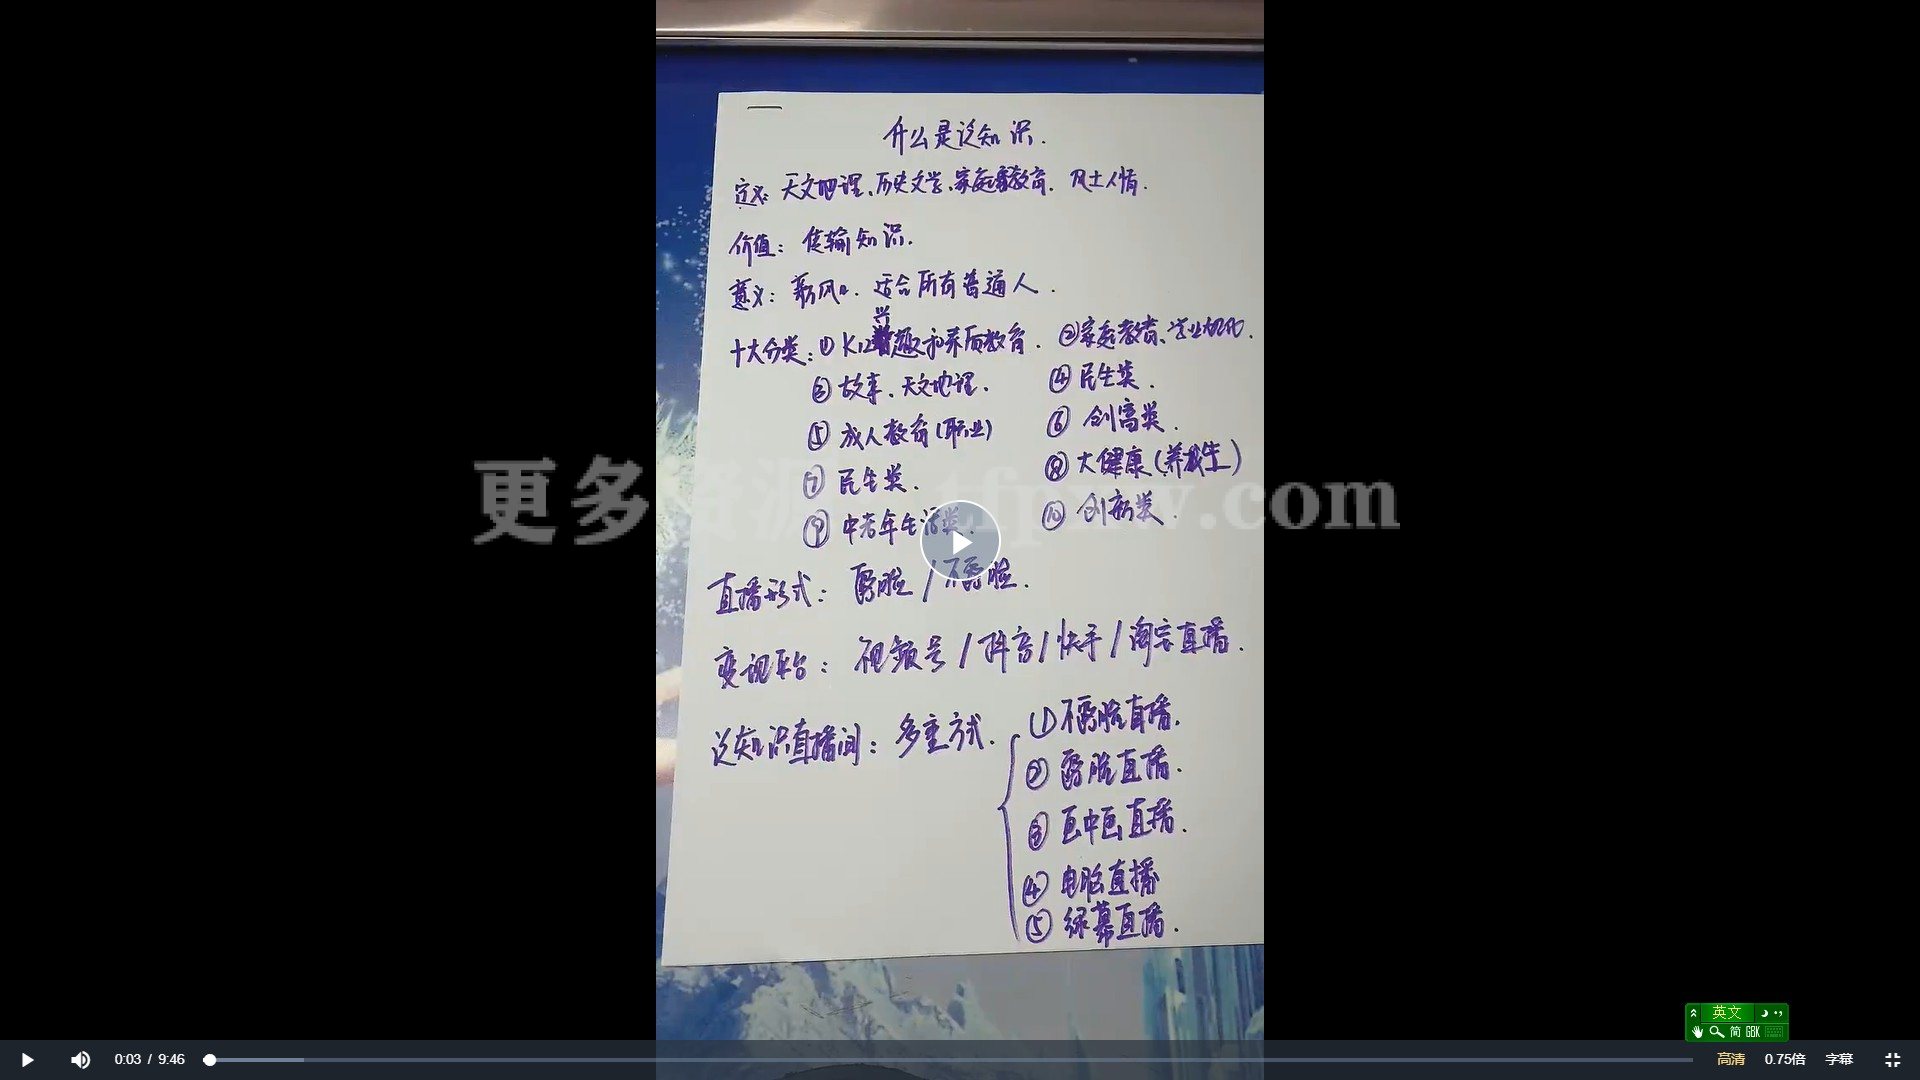 什么是泛知识.
定义: 天文地理、历史文学、家庭教育. 风土人情.
价值: 传输知识.
意义: 新风口. 适合所有普通人.
十大分类: ① K12兴趣和素质教育. ②家庭教育、
③ 故事、天文地理. ④ 民生类.
⑤ 成人教育(职业) ⑥ 创富类.
⑦ 民生类. ⑧ 大健康(养生)
⑨ 中老年生活类. ⑩ 创新类.
直播形式: 露脸/不露脸.
变现平台: 视频号/抖音/快手/淘宝直播.
泛知识直播间: 多重方式. ① 不露脸直播.
② 露脸直播.
③ 画中画直播.
④ 电脑直播
⑤ 绿幕直播.
更多资源 tfpxw.com
英文
简 GBK
0:03 / 9:46 高清 0.75倍 字幕